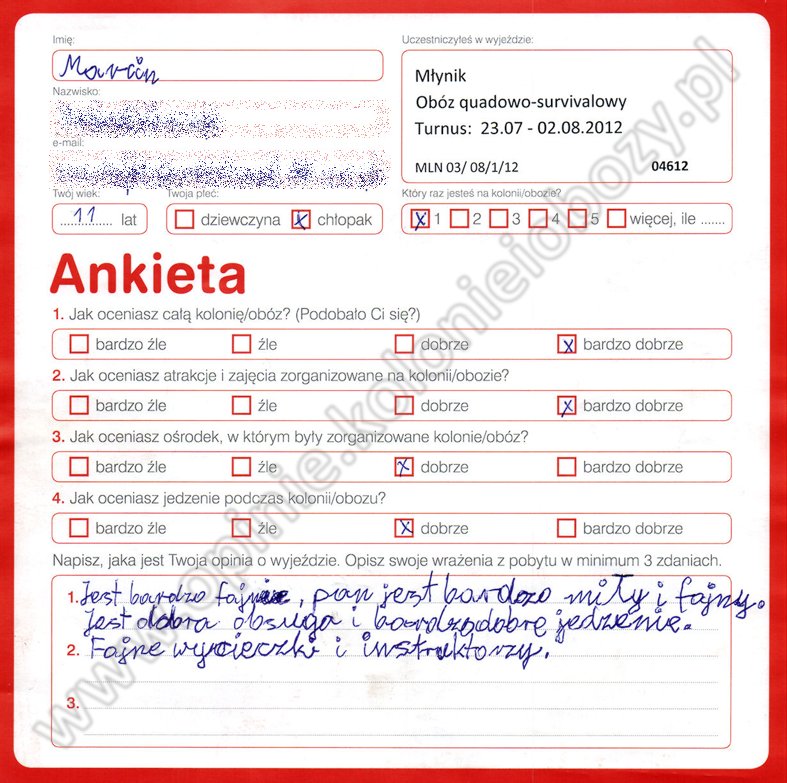 Imię:
Marcin
Nazwisko:
e-mail:
Twój wiek:
11 lat
Twoja płeć:
dziewczyna x chłopak
Uczestniczyłeś w wyjeździe:
Młynik
Obóz quadowo-survivalowy
Turnus: 23.07 - 02.08.2012
MLN 03/ 08/1/12 04612
Który raz jesteś na kolonii/obozie?
x 1 2 3 4 5 więcej, ile .......
Ankieta
1. Jak oceniasz całą kolonię/obóz? (Podobało Ci się?)
bardzo źle źle dobrze x bardzo dobrze
2. Jak oceniasz atrakcje i zajęcia zorganizowane na kolonii/obozie?
bardzo źle źle dobrze x bardzo dobrze
3. Jak oceniasz ośrodek, w którym były zorganizowane kolonie/obóz?
bardzo źle źle x dobrze bardzo dobrze
4. Jak oceniasz jedzenie podczas kolonii/obozu?
bardzo źle źle x dobrze bardzo dobrze
Napisz, jaka jest Twoja opinia o wyjeździe. Opisz swoje wrażenia z pobytu w minimum 3 zdaniach.
1. Jest bardzo fajnie, pan jest bardzo miły i fajny.
Jest dobra obsuga i bardzo dobre jedzenie.
2. Fajne wycieczki i instruktorzy.
3.
www.opinie.kolonieiobozy.pl